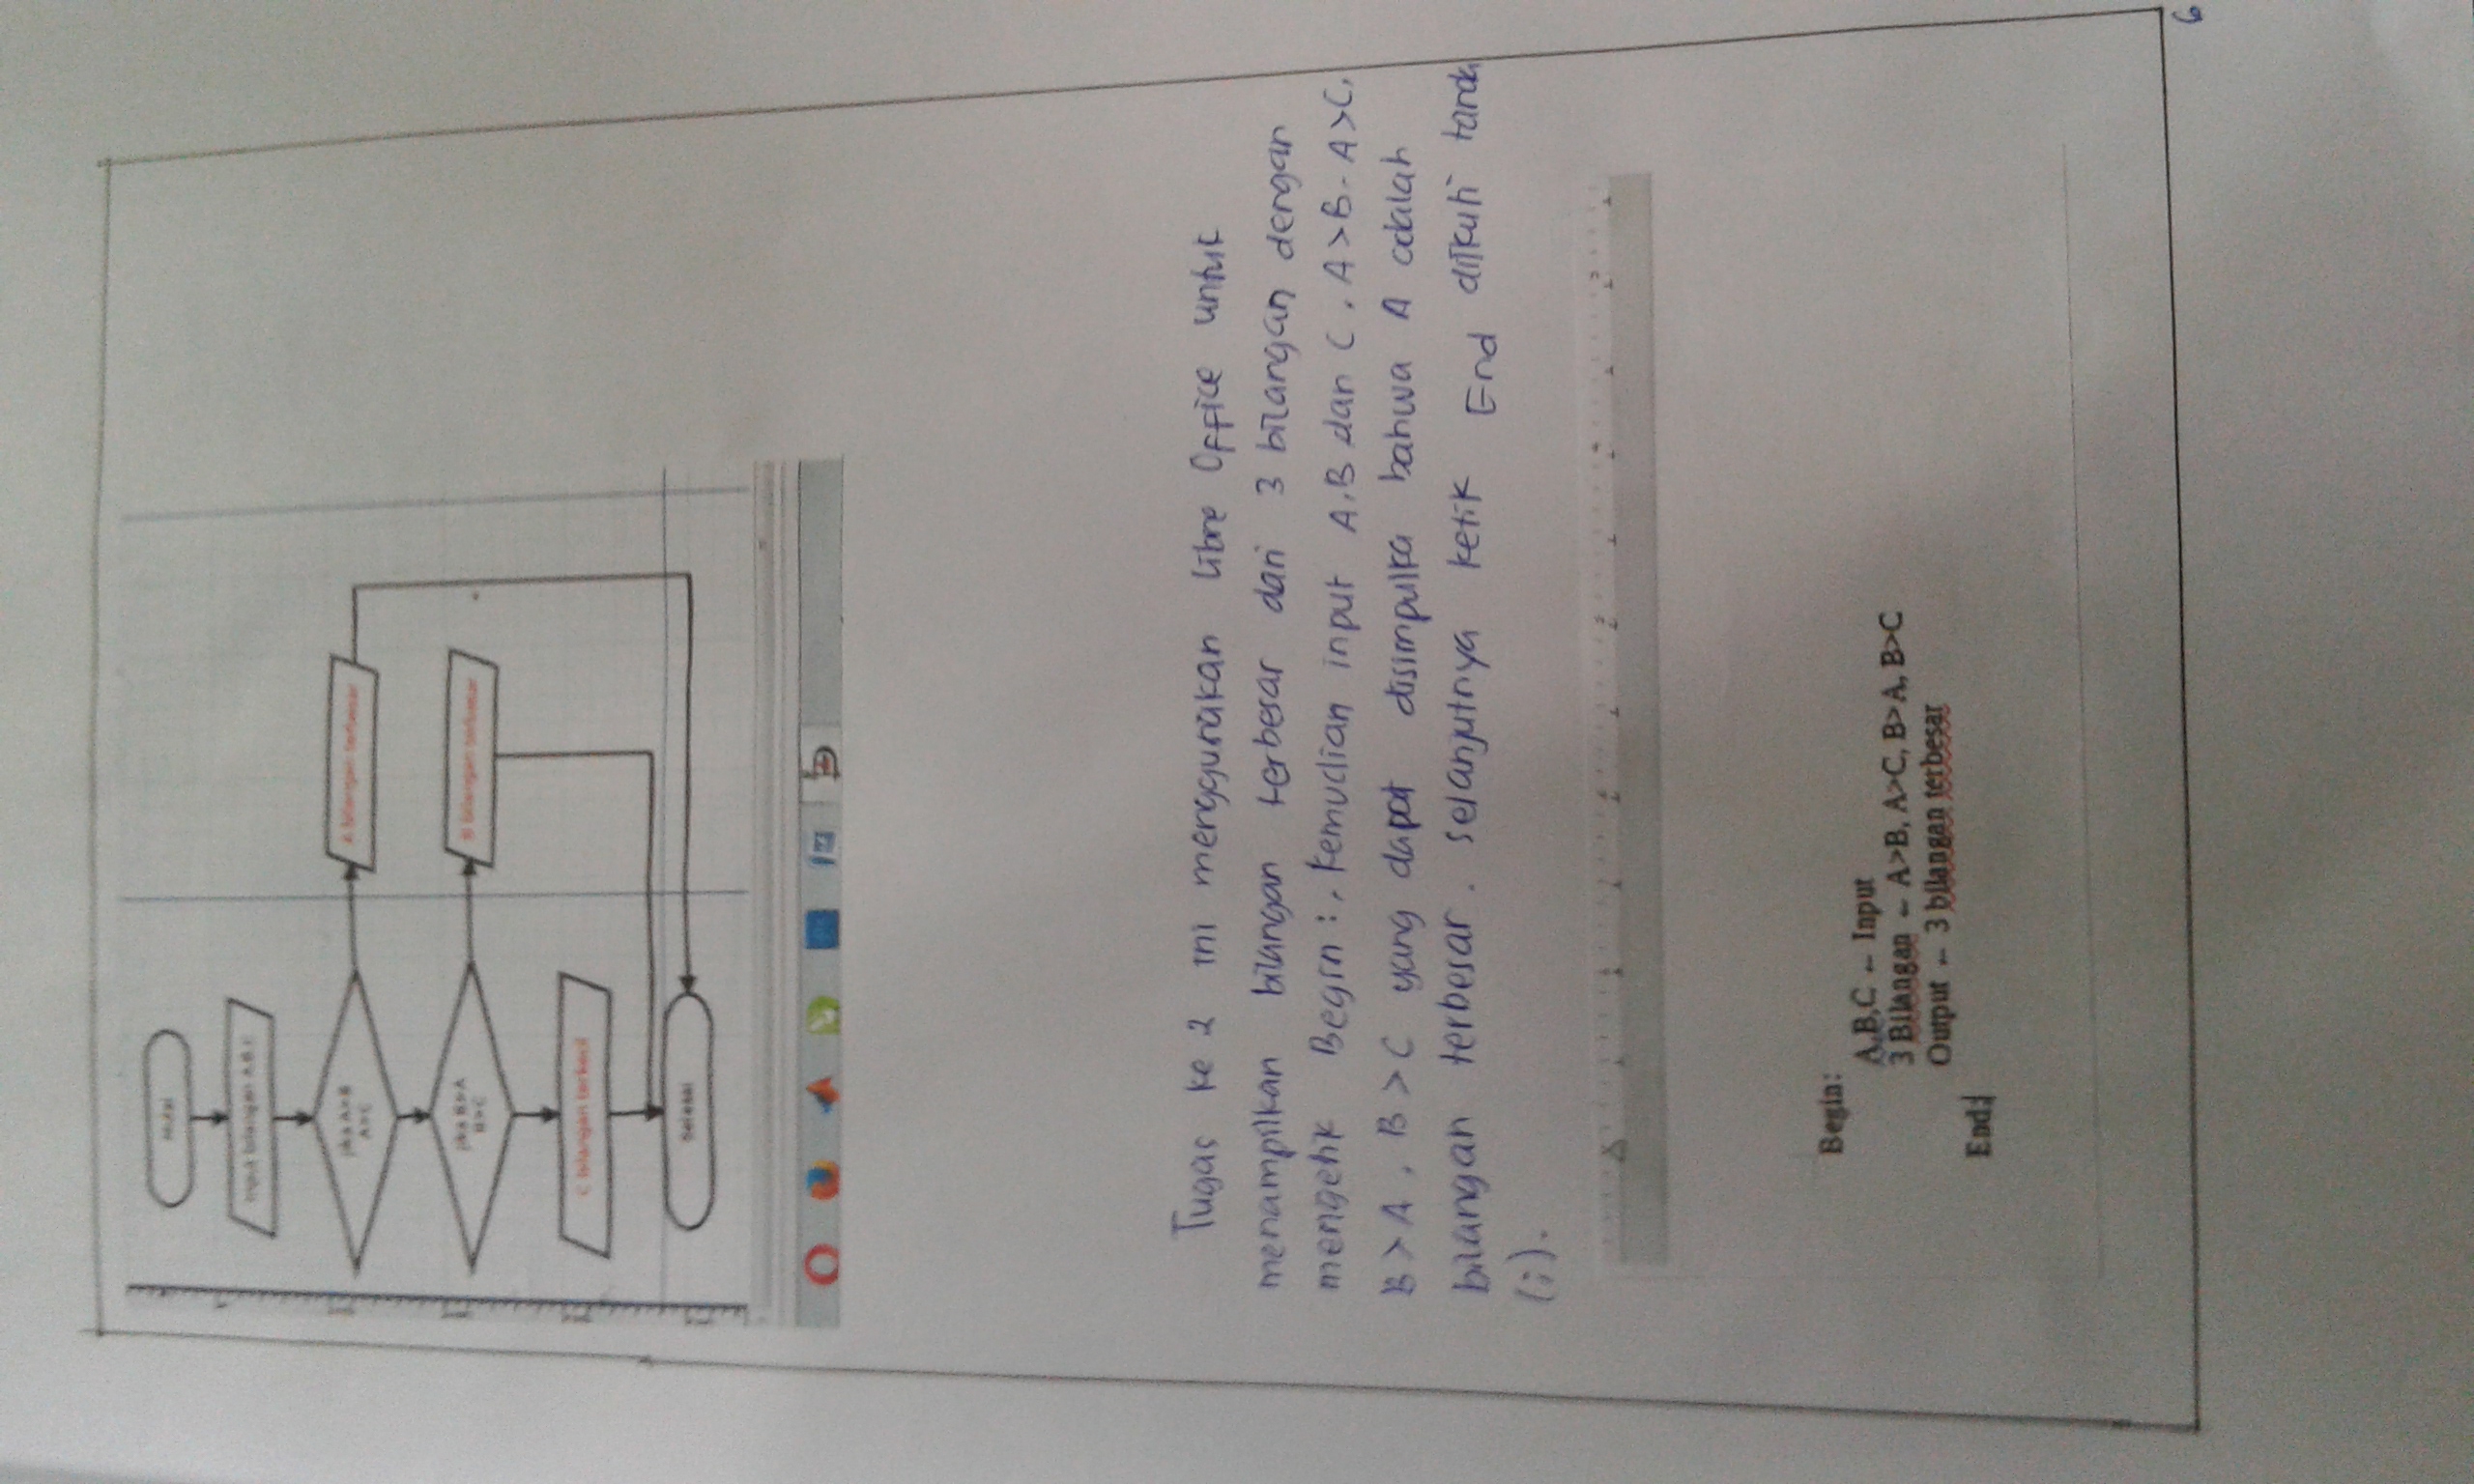 Mulai
Input bilangan A,B,C
jika A>B
A>C
A bilangan terbesar
jika B>A
B>C
B bilangan terbesar
C bilangan terkecil
Selesai
Tugas ke 2 ini menggunakan Libre Office untuk
menampilkan bilangan terbesar dari 3 bilangan dengan
mengetik Begin :, Kemudian input A,B dan C, A>B. A>C,
B>A, B>C yang dapat disimpulka bahwa A adalah
bilangan terbesar. Selanjutnya ketik End diikuti tanda
(;).
Begin:
A,B,C ← Input
3 Bilangan ← A>B, A>C, B>A, B>C
Output ← 3 bilangan terbesar
End;
6